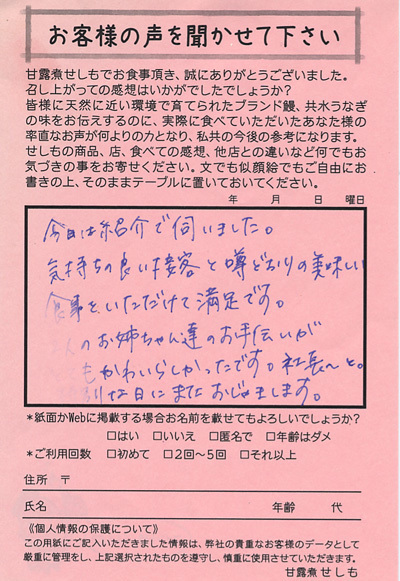 お客様の声を聞かせて下さい
甘露煮せしもでお食事頂き、誠にありがとうございました。
召し上がっての感想はいかがでしたでしょうか?
皆様に天然に近い環境で育てられたブランド鰻、共水うなぎ
の味をお伝えするのに、実際に食べていただいたあなた様の
率直なお声が何よりの力となり、私共の今後の参考になります。
せしもの商品、店、食べての感想、他店との違いなど何でもお
気づきの事をお寄せください。文でも似顔絵でもご自由にお
書きの上、そのままテーブルに置いておいてください。
年 月 日 曜日
今日は紹介で伺いました。
気持ちの良い接客と噂どおりの美味しい
食事をいただけて満足です。
のお姉ちゃん達のお手伝いが
もかわいらしかったです。社長〜と。
別な日にまたおじゃまします。
*紙面かWebに掲載する場合お名前を載せてもよろしいでしょうか?
□はい □いいえ □匿名で □年齢はダメ
*ご利用回数 □初めて □2回〜5回 □それ以上
住所 〒
氏名 年齢 代
《個人情報の保護について》
この用紙にご記入いただきました情報は、弊社の貴重なお客様のデータとして
厳重に管理をし、上記選択されたものを遵守し、慎重に使用させていただきます。
甘露煮せしも